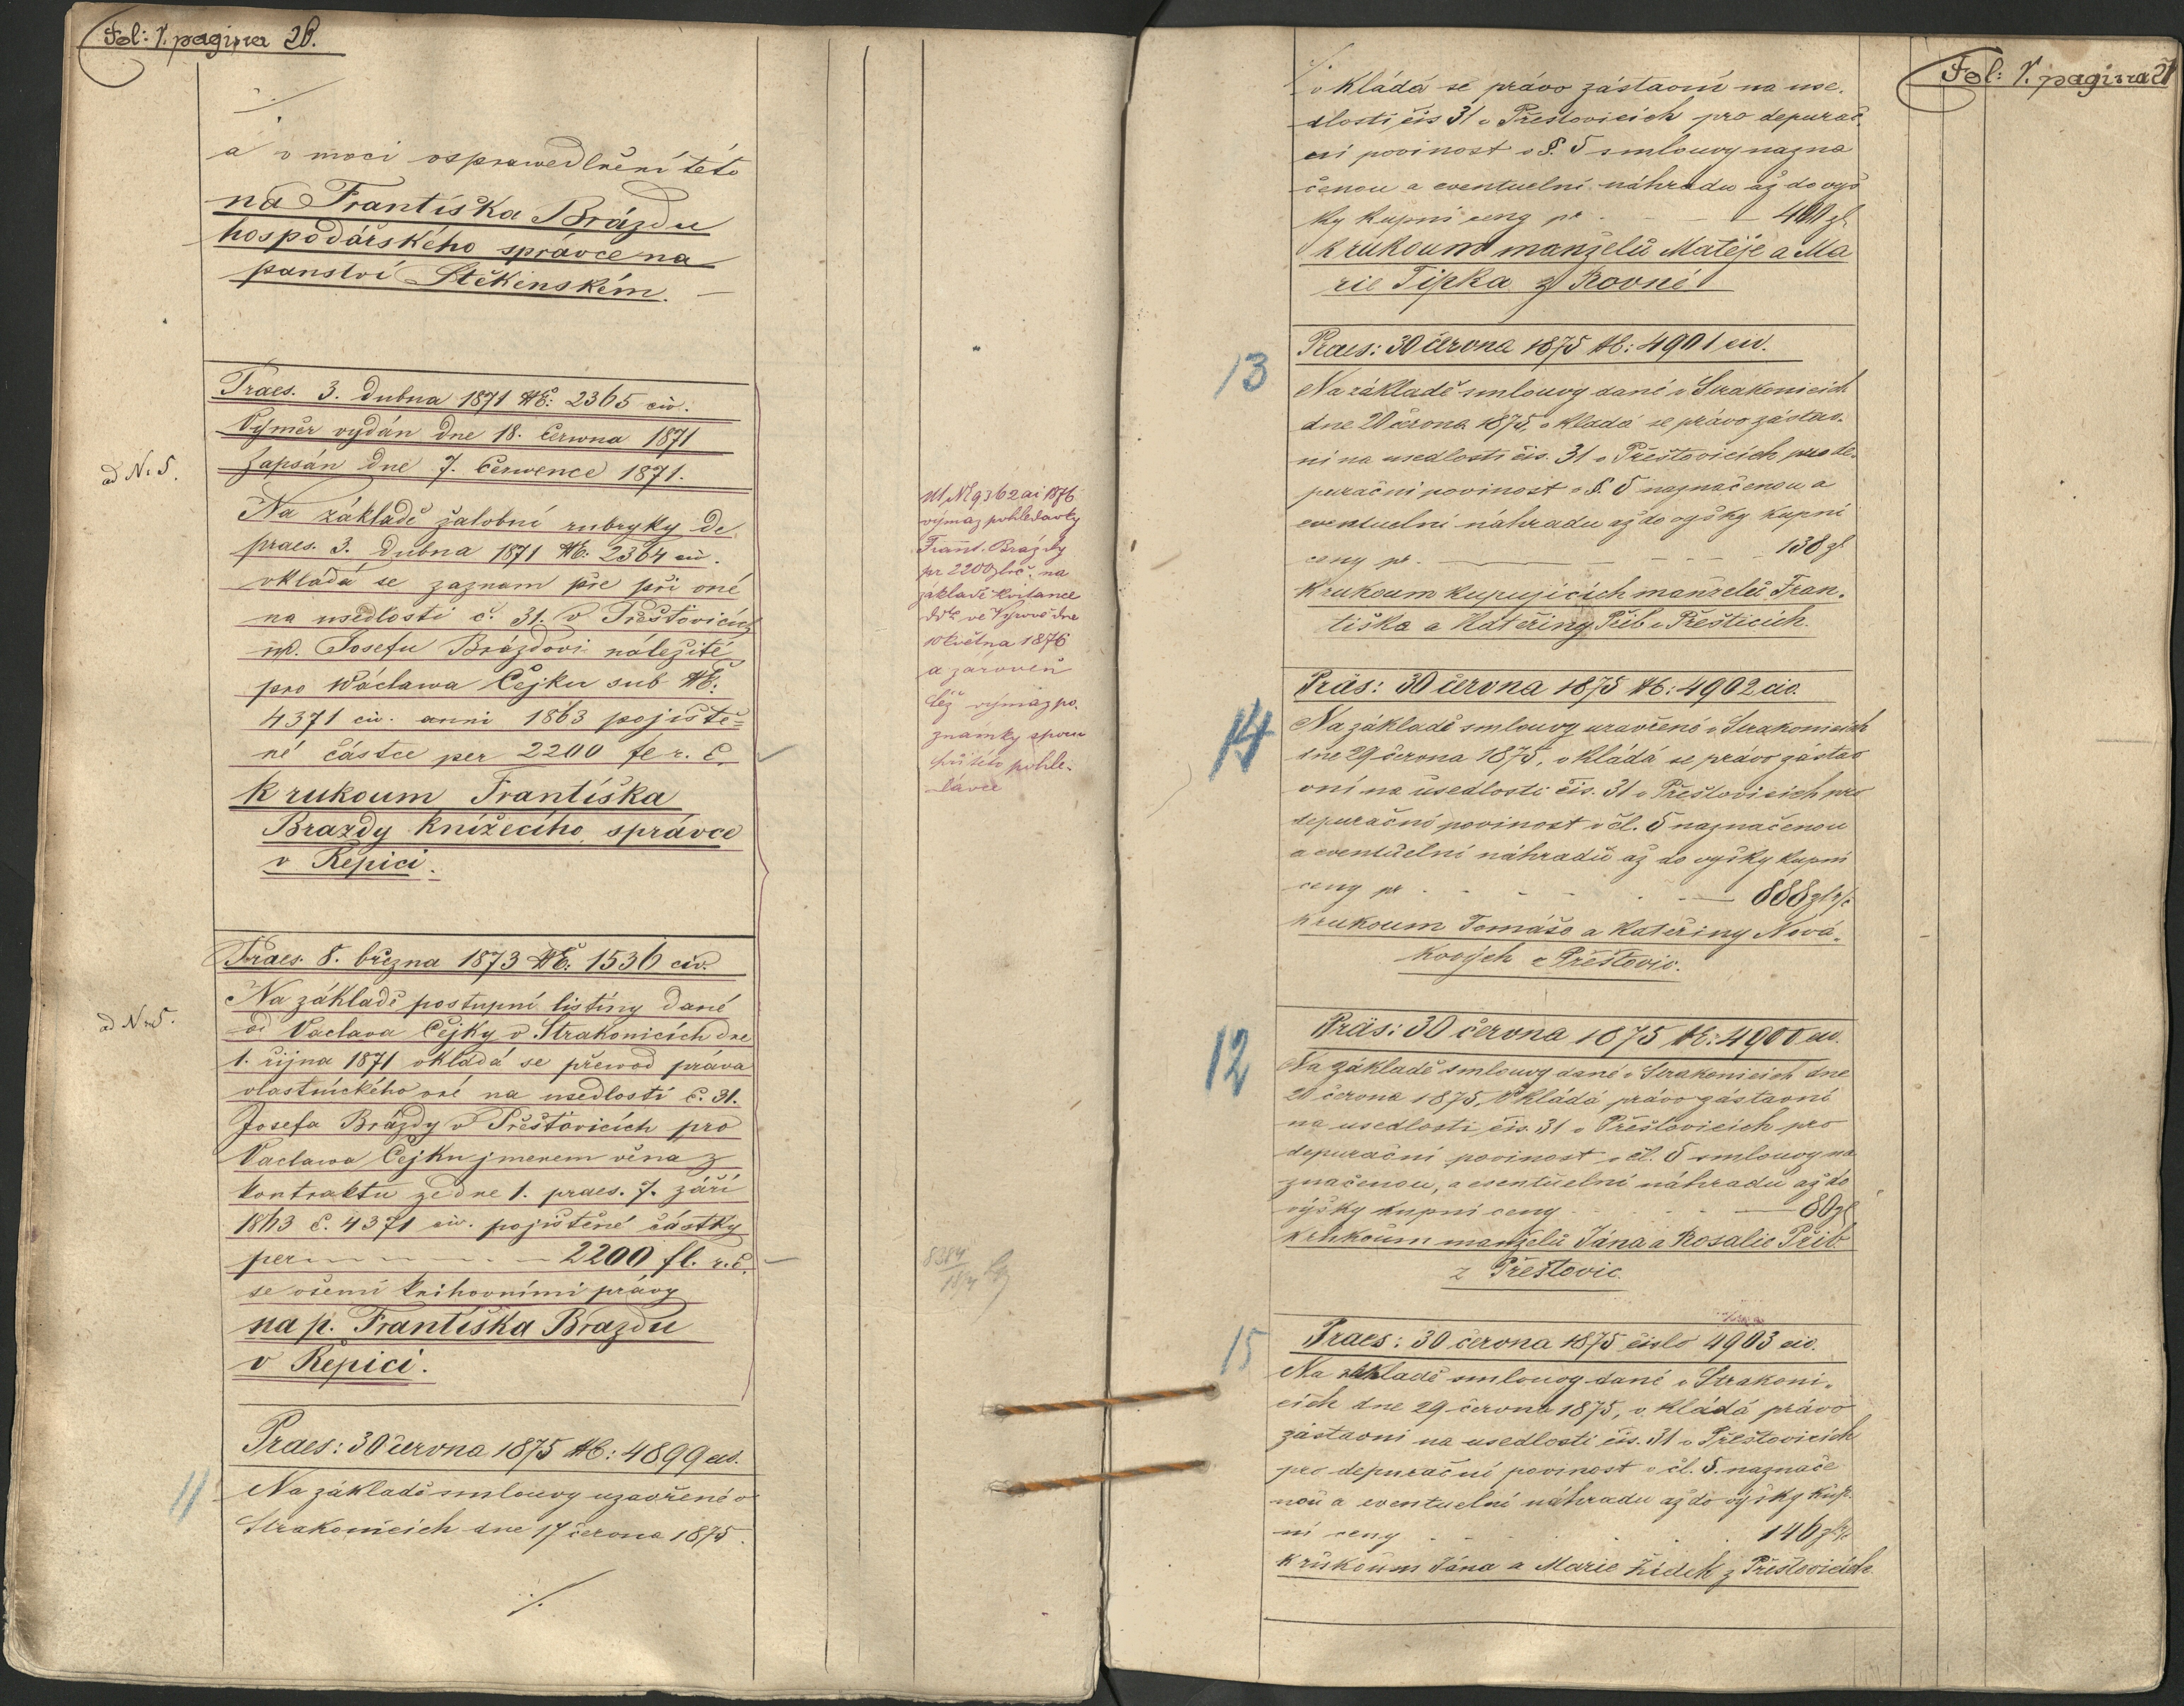 Fol: V. pagina 26.
./.
a v moci osprawedlnění této
na Františka Brázdu
hospodářského správce na
panství Štěkenském. —
Praes. 3. Dubna 1871 №: 2365 civ.
Výměr vydán dne 18. Června 1871
Zapsán dne 7. Července 1871.
ad No 5.
Na základě žalobní rubryky de
praes. 3. Dubna 1871 №: 2364 civ.
vkládá se zaznam pře při oné
na usedlosti č. 31. v Přešťovicích
Josefu Brázdovi náležité
pro Wáclawa Čejku sub №:
4371 civ. anni 1863 pojiště=
né částce per 2200 fl r. č.
k rukoum Františka
Brazdy knížecího správce
v Řepici.
Nº 9362 ai 1876
výmaz pohledavky
Frant. Brázdy
pr 2200 zl rč. na
základě kvitance
10 května 1876
a zároveň
též výmaz po-
známky sporu
při této pohle-
dávce
Praes. 8. března 1873 №: 1536 civ.
ad Nro 5.
Na základě postupní listiny dané
od Vaclava Čejky v Strakonicích dne
1. října 1871 vkládá se převod práva
vlastnického oné na usedlosti č. 31.
Josefa Brázdy v Přešťovicích pro
Vaclawa Čejku jmenem věna z
kontraktu ze dne 1. praes. 7. září
1863 č. 4371 civ. pojištěné částky
per — — — 2200 fl. r. č.
se všemi knihovními právy
na p. Františka Brazdu
v Řepici.
Praes: 30 června 1875 №: 4899 civ.
11
Na základě smlouvy uzavřené v
Strakonicích dne 17 června 1875.
./.
Fol: V. pagina 27
./.
vkládá se právo zástavní na use-
dlosti čís 31 v Přešťovicích pro depurač-
ní povinost v §. 5 smlouvy nazna
čenou a eventuelní náhradu až do výš
ky kupní ceny pr — — 400 zl
k rukoum manželů Matěje a Ma
rie Tipka z Rovné
Praes: 30 června 1875 №: 4901 civ.
13
Na základě smlouvy dané v Strakonicích
dne 20 června 1875, vkladá se právo zástav-
ní na usedlosti čís. 31 v Přešťovicích pro de-
purační povinost v §. 5 naznačenou a
eventuelní náhradu až do výšky kupní
ceny pr. — — — 138 zl
k rukoum kupujících manželů Fran-
tiška a Kateřiny Přib v Přešticích.
Präs: 30 června 1875 №: 4902 civ.
14
Na základě smlouvy uzavřené v Strakonicích
dne 29 června 1875, vkládá se právo zástav
vní na usedlosti čís. 31 v Přešťovicích pro
depurační povinost v čl. 5 naznačenou
a eventuelní náhradu až do výšky kupní
ceny pr — — — 888 zl rč
k rukoum Tomáše a Kateřiny Nová-
kových z Přešťovic.
Präs: 30 června 1875 №: 4900 civ.
12
Na základě smlouvy dané v Strakonicích dne
20 června 1875, vkládá právo zástavní
na usedlosti čís. 31 v Přešťovicích pro
depurační povinost v čl. 5 smlouvy na
značenou, a eventuelní náhradu až do
výšky kupní ceny — — 80 zl
k rukoum manželů Jána a Rosalie Přib
z Přešťovic.
Praes: 30 června 1875 číslo 4903 civ.
15
Na základě smlouvy dané v Strakoni-
cích dne 29 června 1875, vkládá právo
zástavní na usedlosti čís. 31 v Přešťovicích
pro depurační povinost v čl. 5. naznače
nou a eventuelní náhradu až do výšky kup-
ní ceny — — 146 zl rč
k rukoum Jána a Marie Žídek z Přešťovicích